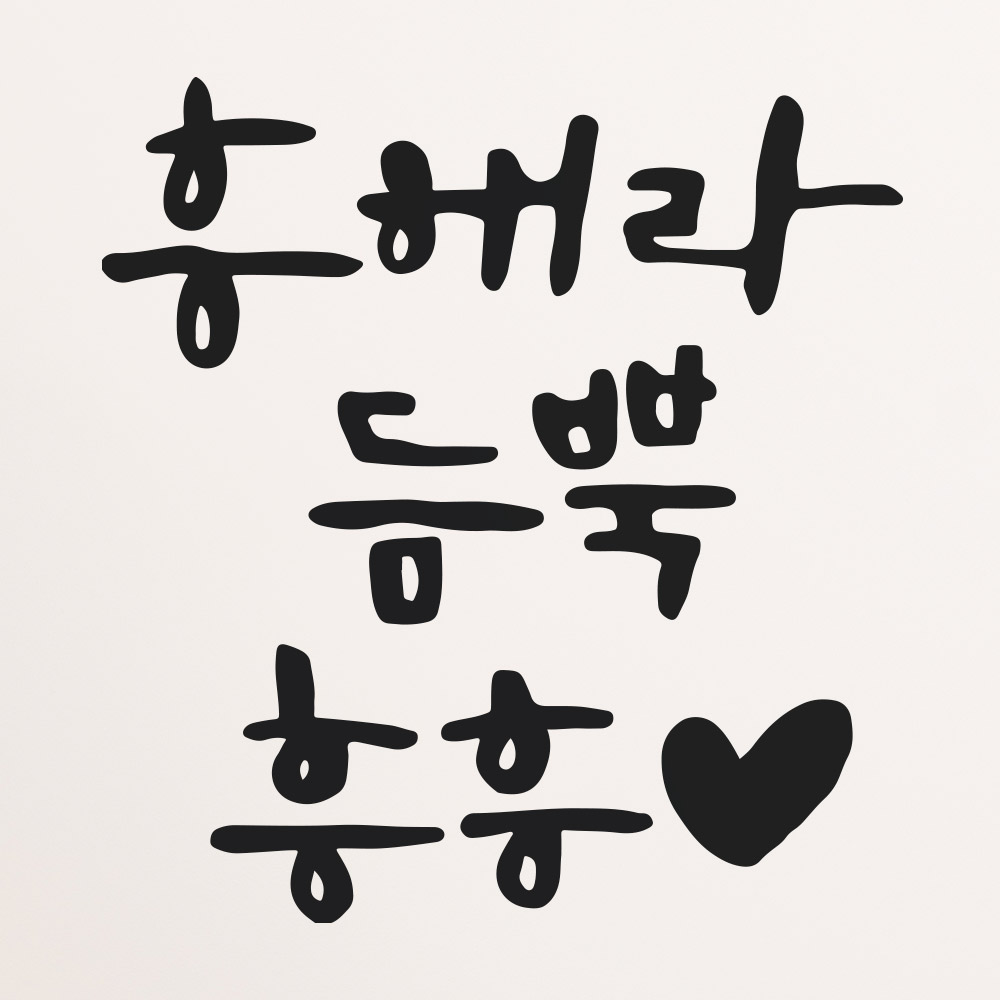 흥해라
듬뿍
흥흥♥